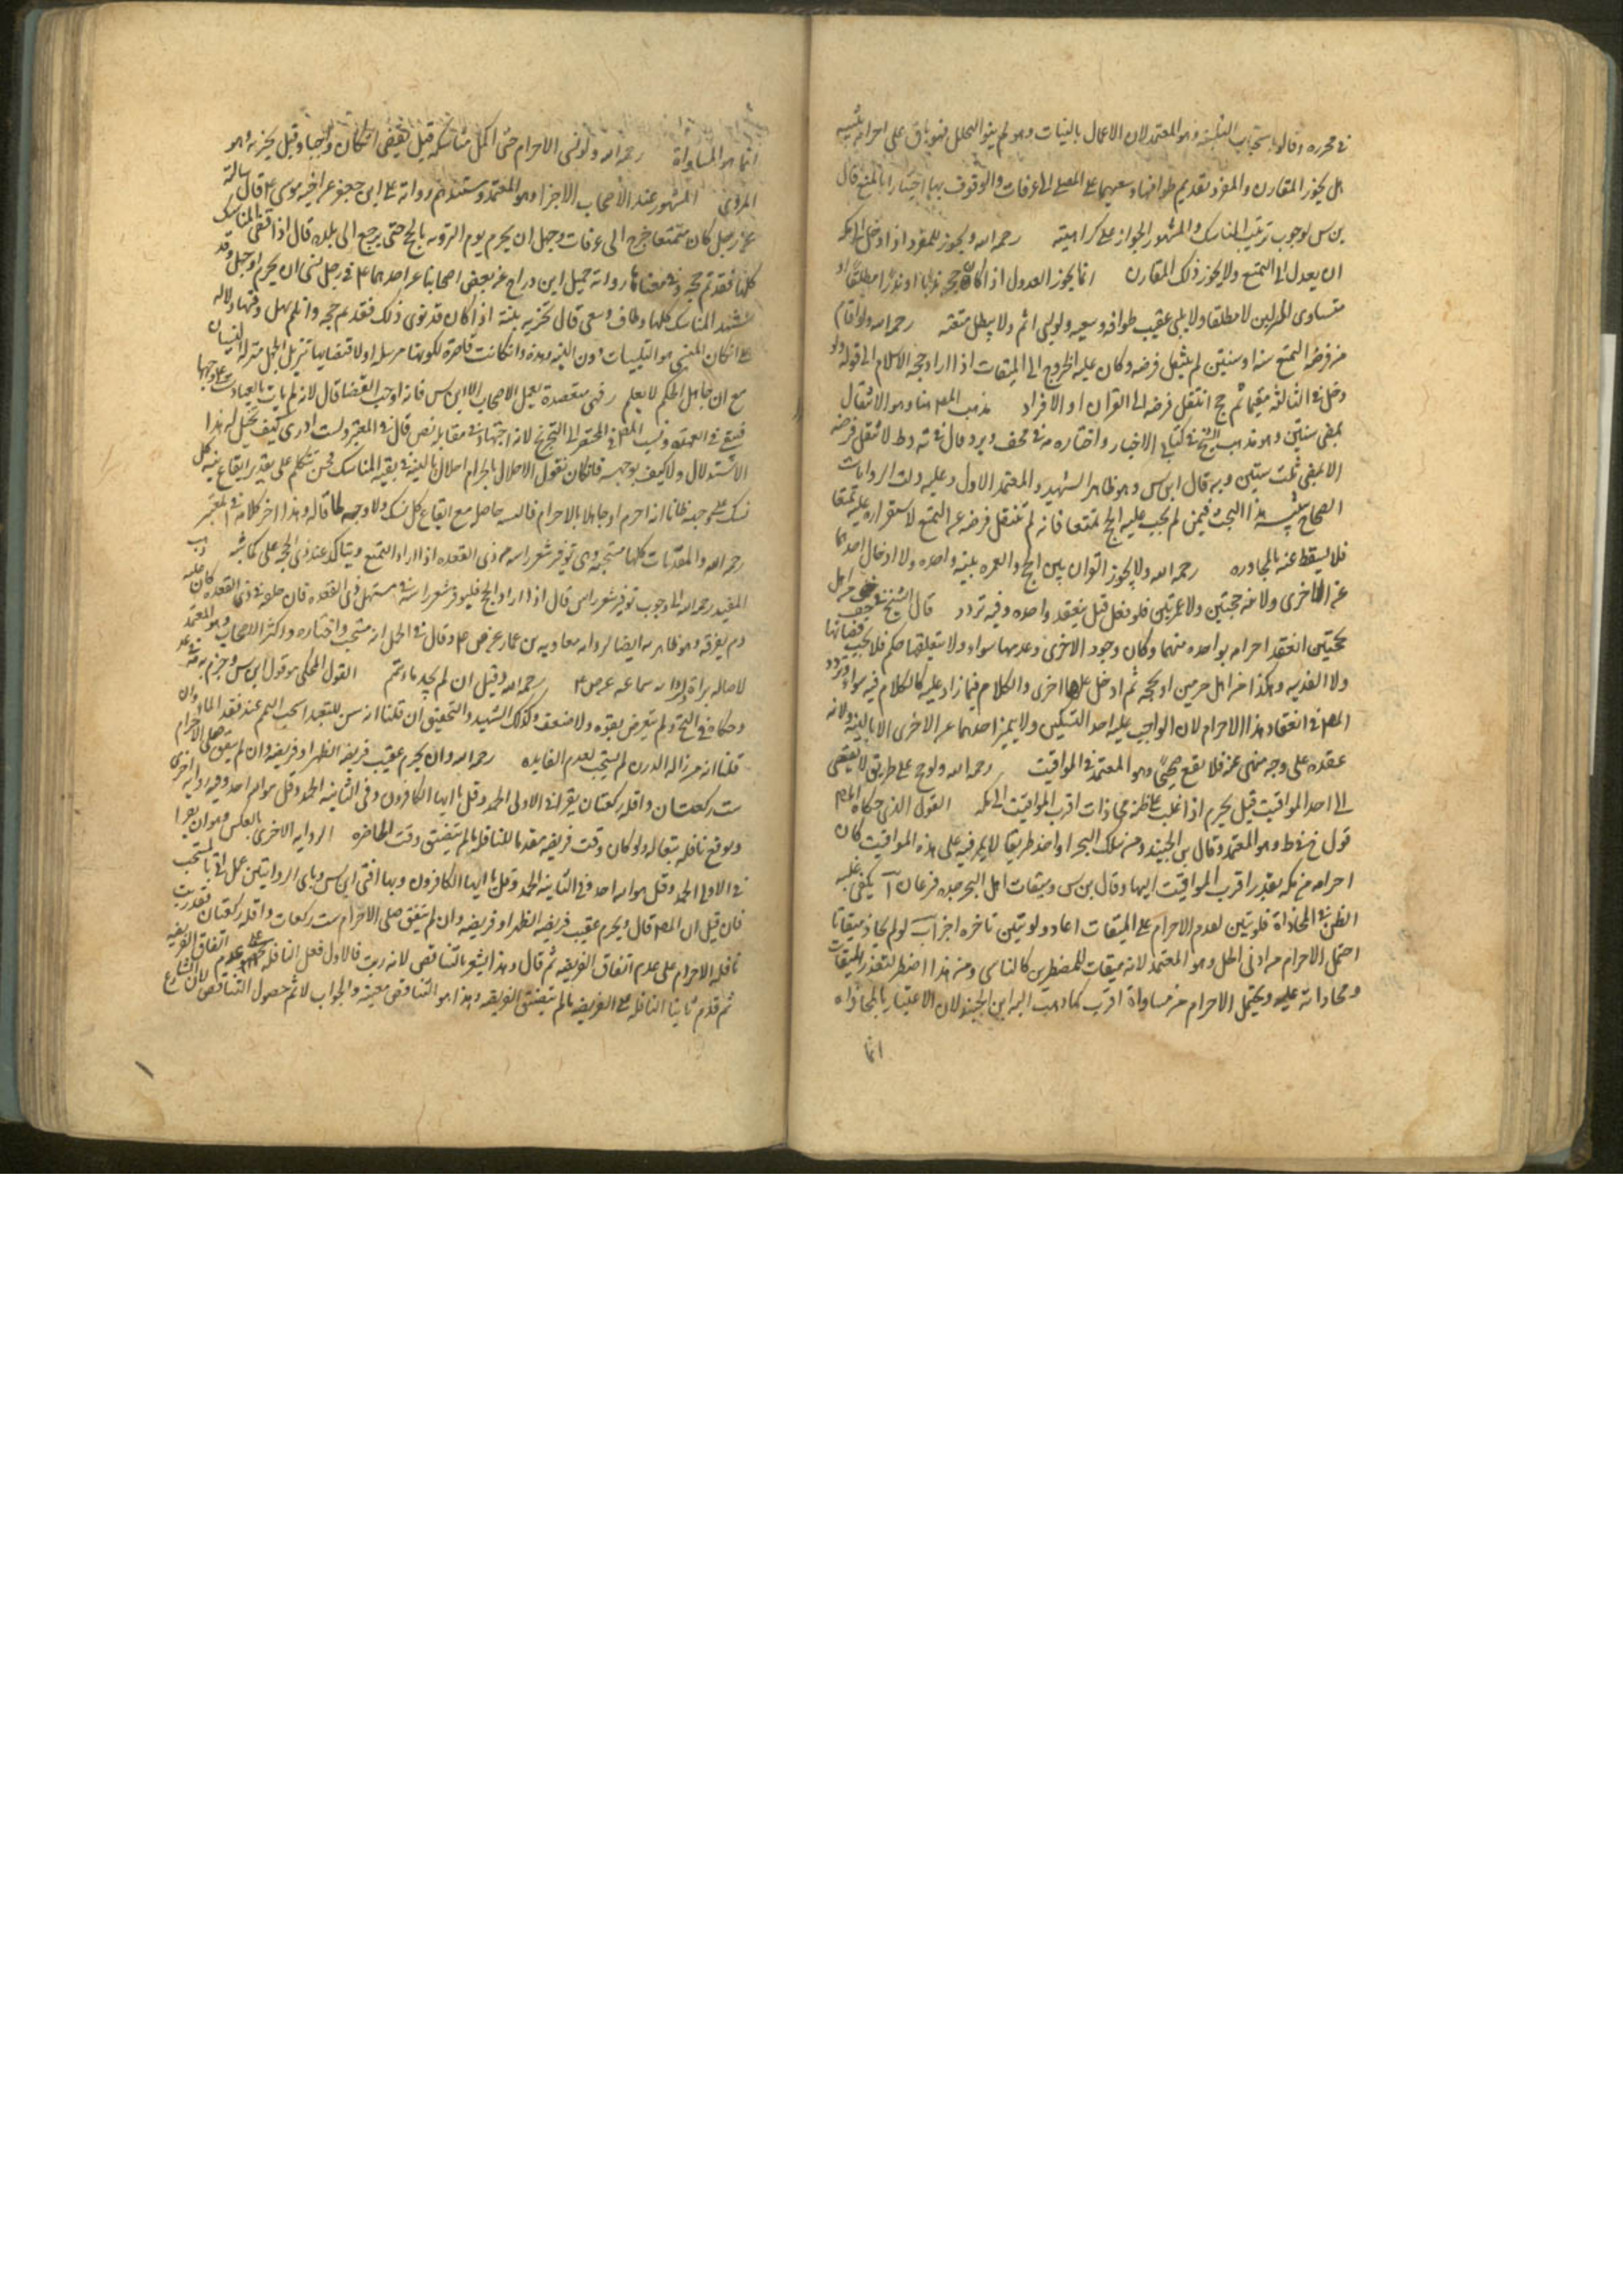 في محرره وقالوا باستحباب التلبية وهو المعتمد لان الاعمال بالنيات وهو لم ينو التحلل فهو باق على احرامه تنبيه
هل يجوز للقارن والمفرد تقديم طوافهما وسعيهما على المضي الى عرفات والوقوف بها اختيارا بالمنع قال
بن س لوجوب ترتيب المناسك والمشهور الجواز على كراهية رحمه الله ويجوز للمفرد اذا دخل الى مكه
ان يعدل الى التمتع ولا يجوز ذلك للقارن انما يجوز العدول اذا كان حجه ندبا او نذرا مطلقا او
متساوى المنزلين لا مطلقا ولا يلبى عقيب طوافه وسعيه ولو لبى اثم ولا يبطل متعته رحمه الله ولو اقام
من فرضه التمتع سنة او سنتين لم ينتقل فرضه وكان عليه الخروج الى الميقات اذا اراد حجه الاسلام الى قوله ولو
دخل في الثالثه مقيما ثم حج انتقل فرضه الى القران او الافراد مذهب المص هنا وهو الانتقال
بمضى سنتين وهو مذهب الشيخ في كتابى الاخبار واختاره في وقال في لا ينتقل فرضه
الا بمضى ثلث سنين وبه قال ابن س وهو ظاهر الشهيد والمعتمد الاول وعليه دلت الروايات
الصحاح تنبيه هذا البحث فيمن لم يجب عليه الحج متمتعا فانه لم تنتقل فرضه عن التمتع لاستقراره عليه تمتعا
فلا يسقط عنه بالمجاوره رحمه الله ولا يجوز القران بين الحج والعمره بنية واحده ولا ادخال احدهما
على الاخرى ولا نية حجتين ولا عمرتين فلو فعل قيل ينعقد واحده وفيه تردد قال الشيخ في من اهل
بحجتين انعقد احرامه بواحده منهما وكان وجود الاخرى وعدمها سواء ولا يتعلق بها حكم فلا يجب قضائها
ولا الفديه وهكذا من اهل بعمرتين او بحجه ثم ادخل عليها اخرى والكلام فيما زاد عليه كالكلام فيه سواء وتردد
المص في انعقاد هذا الاحرام لان الواجب عليه احد النسكين ولا يتميز احدهما عن الاخرى الا بالنية ولانه
عقده على وجه منهى عنه فلا يقع صحيحا وهو المعتمد في المواقيت رحمه الله ولو حج على طريق لا يفضى
الى احد المواقيت قيل يحرم اذا غلب على ظنه محاذات اقرب المواقيت الى مكه القول الذى حكاه المص
قول خ في ط وهو المعتمد وقال بن الجنيد ومن سلك البحر او اخذ طريقا لا يمر فيه على هذه المواقيت كان
احرامه من مكه بقدر اقرب المواقيت اليها وقال بن س وميقات اهل البحر جده فرعان آ يكفى غلبه
الظن في المحاذاة فلو تبين لعدم الاحرام على الميقات اعاد ولو تبين تاخره اجزا ب لو لم يحاذ ميقاتا
احتمل الاحرام من ادنى الحل وهو المعتمد لانه ميقات للمضطرين كالناسى ومن هذا اضطر لتعذر الميقات
ومحاذاته عليه ويحتمل الاحرام من مساواة اقرب كما ذهب اليه ابن الجنيد لان الاعتبار بالمحاذاه
انما
انما هو المساواة رحمه الله ولو نسى الاحرام حتى اكمل مناسكه قيل يقضى ان كان واجبا وقيل يجزيه وهو
المروى المشهور عند الاصحاب الاجزا وهو المعتمد ومستندهم رواية على ابن جعفر عن اخيه موسى ع قال سالته
عن رجل كان متمتعا خرج الى عرفات وجهل ان يحرم يوم الترويه بالحج حتى يرجع الى بلده قال اذا قضى المناسك
كلها فقد تم حجه وفي معناها رواية جميل ابن دراج عن بعض اصحابنا عن احدهما ع في رجل نسى ان يحرم او جهل وقد
شهد المناسك كلها وطاف وسعى قال تجزيه نيته اذا كان قد نوى ذلك فقد تم حجه وان لم يهل وفيها دلاله
على ان كان المنسى هو التلبيات دون النيه وهذه وان كانت قاصرة لكونها مرسله او لاقتضائها تنزيل الجهل منزله النسيان
مع ان جاهل الحكم لا يعلم فهى معتضدة بعمل الاصحاب الا ابن س فانه اوجب القضا قال لانه لم يات بالعبادت على وجهها
فبقى في العهده ونسب المص في المختصر الى التخريج لانه اجتهاد في مقابل نص قال في المعتبر ولست ادرى كيف تخيل له هذا
الاستدلال ولا كيف يوجهه فان كان يقول الاخلال باحرام اخلال بالنية في بقيه المناسك فنحن نتكلم على تقدير ايقاع نية كل
نسك على وجهه ظانا انه احرم او جاهلا بالاحرام فالنيه حاصل مع ايقاع كل نسك ولا وجه لما قاله وهذا اخر كلامه في المعتبر
رحمه الله والمقدمات كلها مستحبه وهى توفير شعر راسه من ذى القعده اذا اراد التمتع ويتاكد عند ذى الحجه على الاشبه ذهب
المفيد رحمه الله الى وجوب توفير شعر راس قال اذا اراد الحج فليوفر شعر راسه في مستهل ذى القعده فان حلقه في ذى القعده كان عليه
دم يهرقه وهو ظاهر ايضا لرواية معاويه بن عمار عن ص ع وقال في الحل انه مستحب واختاره واكثر الاصحاب وهو المعتمد
لاصاله براة ولرواية سماعه عن ص ع رحمه الله وقيل ان لم يجد ماء تيمم القول المحكى هو قول ابن س وجزم به
وحكاه في التحرير ولم يتعرض بقوه ولا ضعف وكذلك الشهيد والتحقيق ان قلنا انه سن للتعبد استحب التيمم عند فقد الماء وان
قلنا انه من ازاله الدرن لم يستحب لعدم الفايده رحمه الله وان يحرم عقيب فريضه الظهر او فريضه وان لم يتفق صلى الاحرام
ست ركعتان واقله ركعتان يقرا في الاولى الحمد وقل يا ايها الكافرون وفي الثانيه الحمد وقل هو الله احد وفيه روايه اخرى
ويوقع نافله تبعا له ولو كان وقت فريضه مقدما للنافله ما لم يتضيق وقت الحاضره الروايه الاخرى بالعكس وهو ان يقرا
في الاولى الحمد وقل هو الله احد وفي الثانيه الحمد وقل يا ايها الكافرون وبها افتى ابن س وباى الروايتين عمل اتى بالمستحب
فان قيل ان المص قال ويحرم عقيب فريضه الظهر او فريضه وان لم يتفق صلى الاحرام ست ركعات واقله ركعتان فقد رتب
نافله الاحرام على عدم اتفاق الفريضه ثم قال وهذا يشعر بالتناقض لانه رتب فالاول فعل النافله على عدم اتفاق الفريضه
ثم قدم ثانيا النافله على الفريضه ما لم يتضيق الفريضه وهذا هو التناقض بعينه والجواب لا ثم حصول التناقض لان الشارع